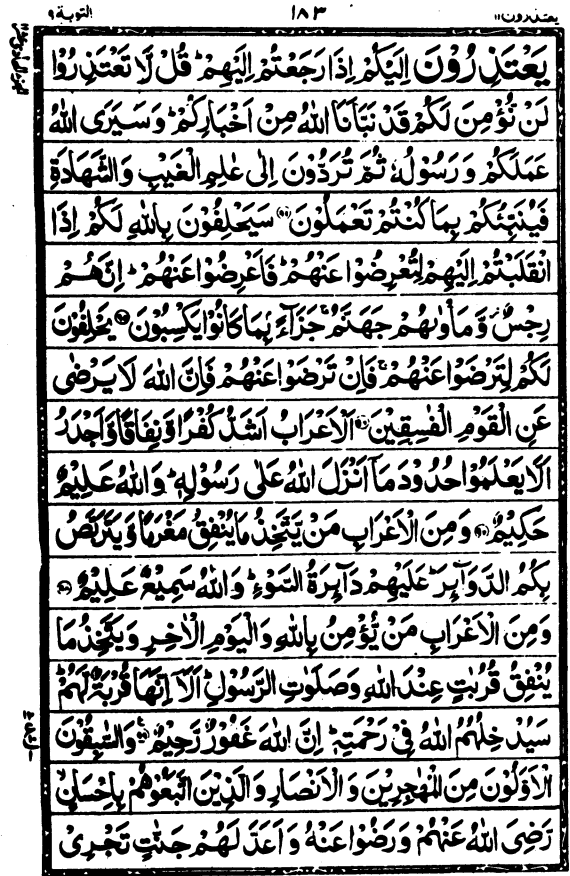 يعتذرون ١١ ١٨٣ التوبة ٩
يَعْتَذِرُوْنَ اِلَيْكُمْ اِذَا رَجَعْتُمْ اِلَيْهِمْ ؕ قُلْ لَّا تَعْتَذِرُوْا
لَنْ نُّؤْمِنَ لَكُمْ قَدْ نَبَّاَنَا اللّٰهُ مِنْ اَخْبَارِكُمْ ؕ وَسَيَرَى اللّٰهُ
عَمَلَكُمْ وَرَسُوْلُهٗ ثُمَّ تُرَدُّوْنَ اِلٰى عٰلِمِ الْغَيْبِ وَالشَّهَادَةِ
فَيُنَبِّئُكُمْ بِمَا كُنْتُمْ تَعْمَلُوْنَ سَيَحْلِفُوْنَ بِاللّٰهِ لَكُمْ اِذَا
انْقَلَبْتُمْ اِلَيْهِمْ لِتُعْرِضُوْا عَنْهُمْ ؕ فَاَعْرِضُوْا عَنْهُمْ ؕ اِنَّهُمْ
رِجْسٌ وَّمَاْوٰىهُمْ جَهَنَّمُ ۚ جَزَآءًۢ بِمَا كَانُوْا يَكْسِبُوْنَ يَحْلِفُوْنَ
لَكُمْ لِتَرْضَوْا عَنْهُمْ ۚ فَاِنْ تَرْضَوْا عَنْهُمْ فَاِنَّ اللّٰهَ لَا يَرْضٰى
عَنِ الْقَوْمِ الْفٰسِقِيْنَ اَلْاَعْرَابُ اَشَدُّ كُفْرًا وَّنِفَاقًا وَّاَجْدَرُ
اَلَّا يَعْلَمُوْا حُدُوْدَ مَآ اَنْزَلَ اللّٰهُ عَلٰى رَسُوْلِهٖ ؕ وَاللّٰهُ عَلِيْمٌ
حَكِيْمٌ وَمِنَ الْاَعْرَابِ مَنْ يَّتَّخِذُ مَا يُنْفِقُ مَغْرَمًا وَّيَتَرَبَّصُ
بِكُمُ الدَّوَآئِرَ ؕ عَلَيْهِمْ دَآئِرَةُ السَّوْءِ ؕ وَاللّٰهُ سَمِيْعٌ عَلِيْمٌ
وَمِنَ الْاَعْرَابِ مَنْ يُّؤْمِنُ بِاللّٰهِ وَالْيَوْمِ الْاٰخِرِ وَيَتَّخِذُ مَا
يُنْفِقُ قُرُبٰتٍ عِنْدَ اللّٰهِ وَصَلَوٰتِ الرَّسُوْلِ ؕ اَلَآ اِنَّهَا قُرْبَةٌ لَّهُمْ ؕ
سَيُدْخِلُهُمُ اللّٰهُ فِيْ رَحْمَتِهٖ ؕ اِنَّ اللّٰهَ غَفُوْرٌ رَّحِيْمٌ وَالسّٰبِقُوْنَ
الْاَوَّلُوْنَ مِنَ الْمُهٰجِرِيْنَ وَالْاَنْصَارِ وَالَّذِيْنَ اتَّبَعُوْهُمْ بِاِحْسَانٍ
رَّضِيَ اللّٰهُ عَنْهُمْ وَرَضُوْا عَنْهُ وَاَعَدَّ لَهُمْ جَنّٰتٍ تَجْرِيْ